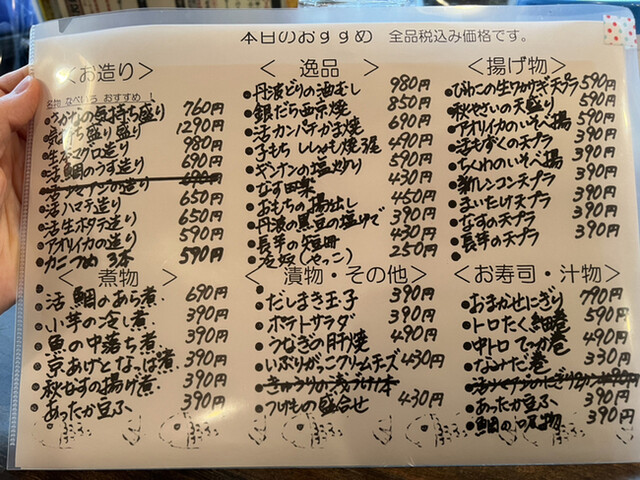 本日のおすすめ 全品税込み価格です。
＜お造り＞
名物 なべいち おすすめ！
さかなの気持ち盛り 760円
盛り盛り 1290円
生本マグロ造り 980円
活鯛のうす造り 690円
の造り 690円
活ハマチ造り 650円
活生ホタテ造り 650円
アオリイカの造り 590円
カニつめ 3本 590円
＜煮物＞
活鯛のあら煮 690円
小芋の冷し煮 390円
魚の中落ち煮 390円
京あげとなっぱ煮 390円
秋なすの揚げ煮 390円
あったか豆ふ 390円
＜逸品＞
丹波どりの酒むし 980円
銀だら西京焼 850円
活カンパチかま焼 690円
子もちししゃも焼3尾 490円
ギンナンの塩炒り 590円
なす田楽 430円
おもちの揚出し 450円
丹波の黒豆の塩ゆで 390円
長芋の短冊 430円
冷奴(やっこ) 250円
＜漬物・その他＞
だしまき玉子 390円
ポテトサラダ 390円
うなぎの肝焼 490円
いぶりがっこクリームチーズ 430円
きゅうりの浅づけ1本
つけもの盛合せ 430円
＜揚げ物＞
びわこの生ワカサギ天プラ 590円
秋やさいの天盛り 590円
アオリイカのいそべ揚 590円
活もずくの天プラ 390円
ちくわのいそべ揚 390円
新レンコン天プラ 390円
まいたけ天プラ 390円
なすの天プラ 390円
長芋の天プラ 390円
＜お寿司・汁物＞
おまかせにぎり 790円
トロたく細巻 590円
中トロてっか巻 490円
なみだ巻 330円
あったか豆ふ 390円
鯛の吸物 390円